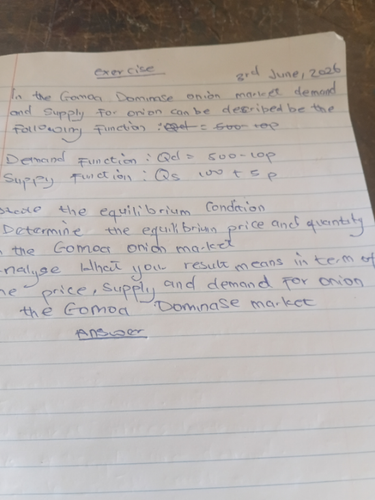 exercise
3rd June, 2026
In the Gomoa Dominase onion market demand
and Supply for onion can be described be the
following function : Qd = 500-10p
Demand Function : Qd = 500-10p
Supply Function : Qs 100 + 5p
the equilibrium Condition
Determine the equilibrium price and quantity
the Gomoa onion market
analyse What you result means in term of
price, supply and demand for onion
the Gomoa Dominase market
Answer